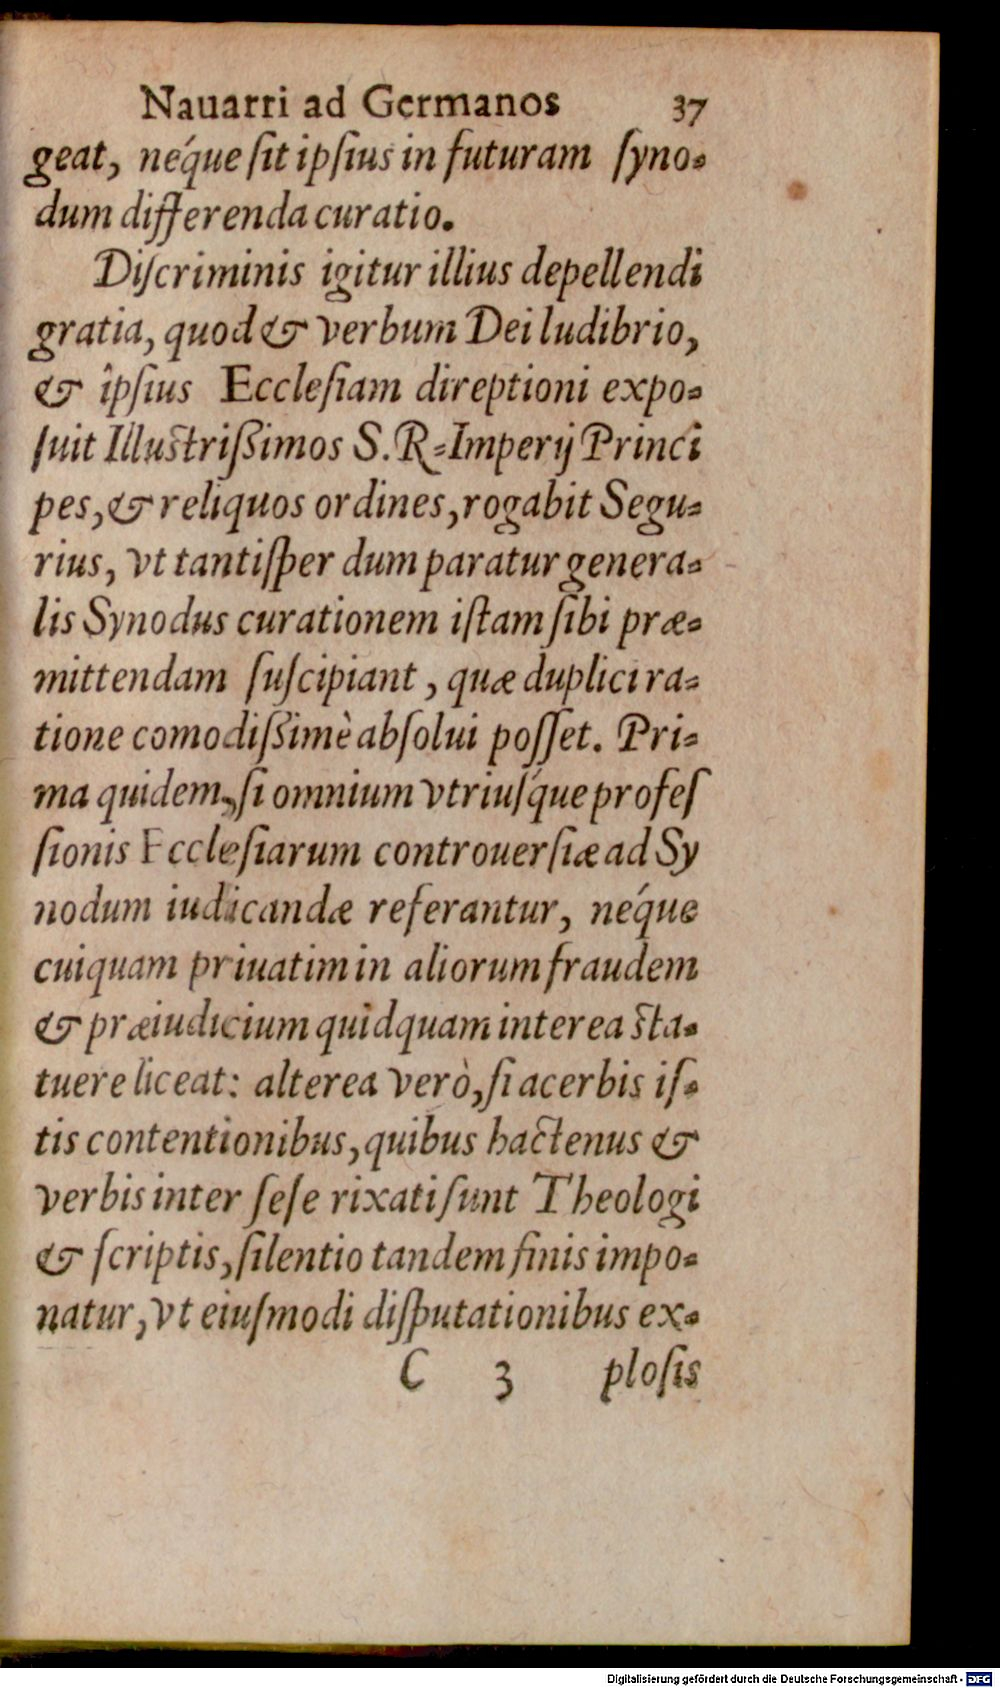 Nauarri ad Germanos 37
geat, néque ſit ipſius in futuram ſyno-
dum differenda curatio.
Diſcriminis igitur illius depellendi
gratia, quod & verbum Dei ludibrio,
& îpſius Eccleſiam direptioni expo-
ſuit Illuſtriſſimos S.R-Imperij Princi
pes, & reliquos ordines, rogabit Segu-
rius, vt tantiſper dum paratur genera-
lis Synodus curationem iſtam ſibi præ-
mittendam ſuſcipiant, quæ duplici ra-
tione comodiſſimè abſolui poſſet. Pri-
ma quidem, ſi omnium vtriuſq́ue profeſ
ſionis Eccleſiarum controuerſiæ ad Sy
nodum iudicandæ referantur, néque
cuiquam priuatim in aliorum fraudem
& præiudicium quidquam interea ſta-
tuere liceat: alterea verò, ſi acerbis iſ-
tis contentionibus, quibus hactenus &
verbis inter ſeſe rixati ſunt Theologi
& ſcriptis, ſilentio tandem finis impo-
natur, vt eiuſmodi diſputationibus ex-
C 3 ploſis
Digitalisierung gefördert durch die Deutsche Forschungsgemeinschaft - DFG